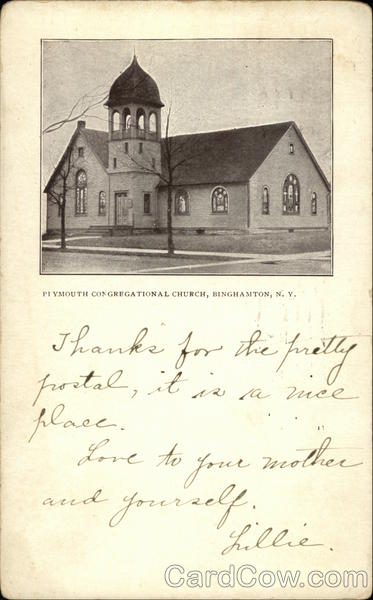 PLYMOUTH CONGREGATIONAL CHURCH, BINGHAMTON, N. Y.
Thanks for the pretty
postal, it is a nice
place.
Love to your mother
and yourself.
Lillie.
CardCow.com